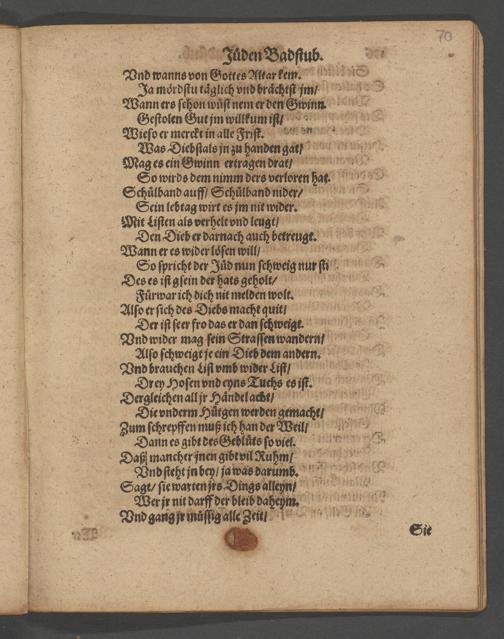 70
Jüden Badstub.
Vnd wanns von Gottes Altar kem.
Ja mördstu täglich vnd brächtst jm/
Wann ers schon wüst nem er den Gwinn.
Gestolen Gut jm willkum ist/
Wie so er merckt in alle Frist.
Was Diebstals jn zu handen gat/
Mag es ein Gwinn ertragen drat/
So wirds dem nimm ders verloren hat.
Schülband auff/ Schülband nider/
Sein lebtag wirt es jm nit wider.
Mit Listen als verhelt vnd leugt/
Den Dieb er darnach auch betreugt.
Wann er es wider lösen will/
So spricht der Jüd nun schweig nur stil
Des es ist gsein der hats geholt/
Fürwar ich dich nit melden wolt.
Also er sich des Diebs macht quit/
Der ist seer fro das er dan schweigt.
Vnd wider mag sein Strassen wandern/
Also schweigt je ein Dieb dem andern.
Vnd brauchen List vmb wider List/
Drey Hosen vnd eyns Tuchs es ist.
Dergleichen all jr Händel acht/
Die vnderm Hütgen werden gemacht/
Zum schreyffen muß ich han der Weil/
Dann es gibt des Geblüts so viel.
Daß mancher jnen gibt vil Ruhm/
Vnd steht jn bey/ ja was darumb.
Sagt/ sie warten jrs Dings alleyn/
Wer jr nit darff der bleib daheym.
Vnd gang jr müssig alle Zeit/
Sie